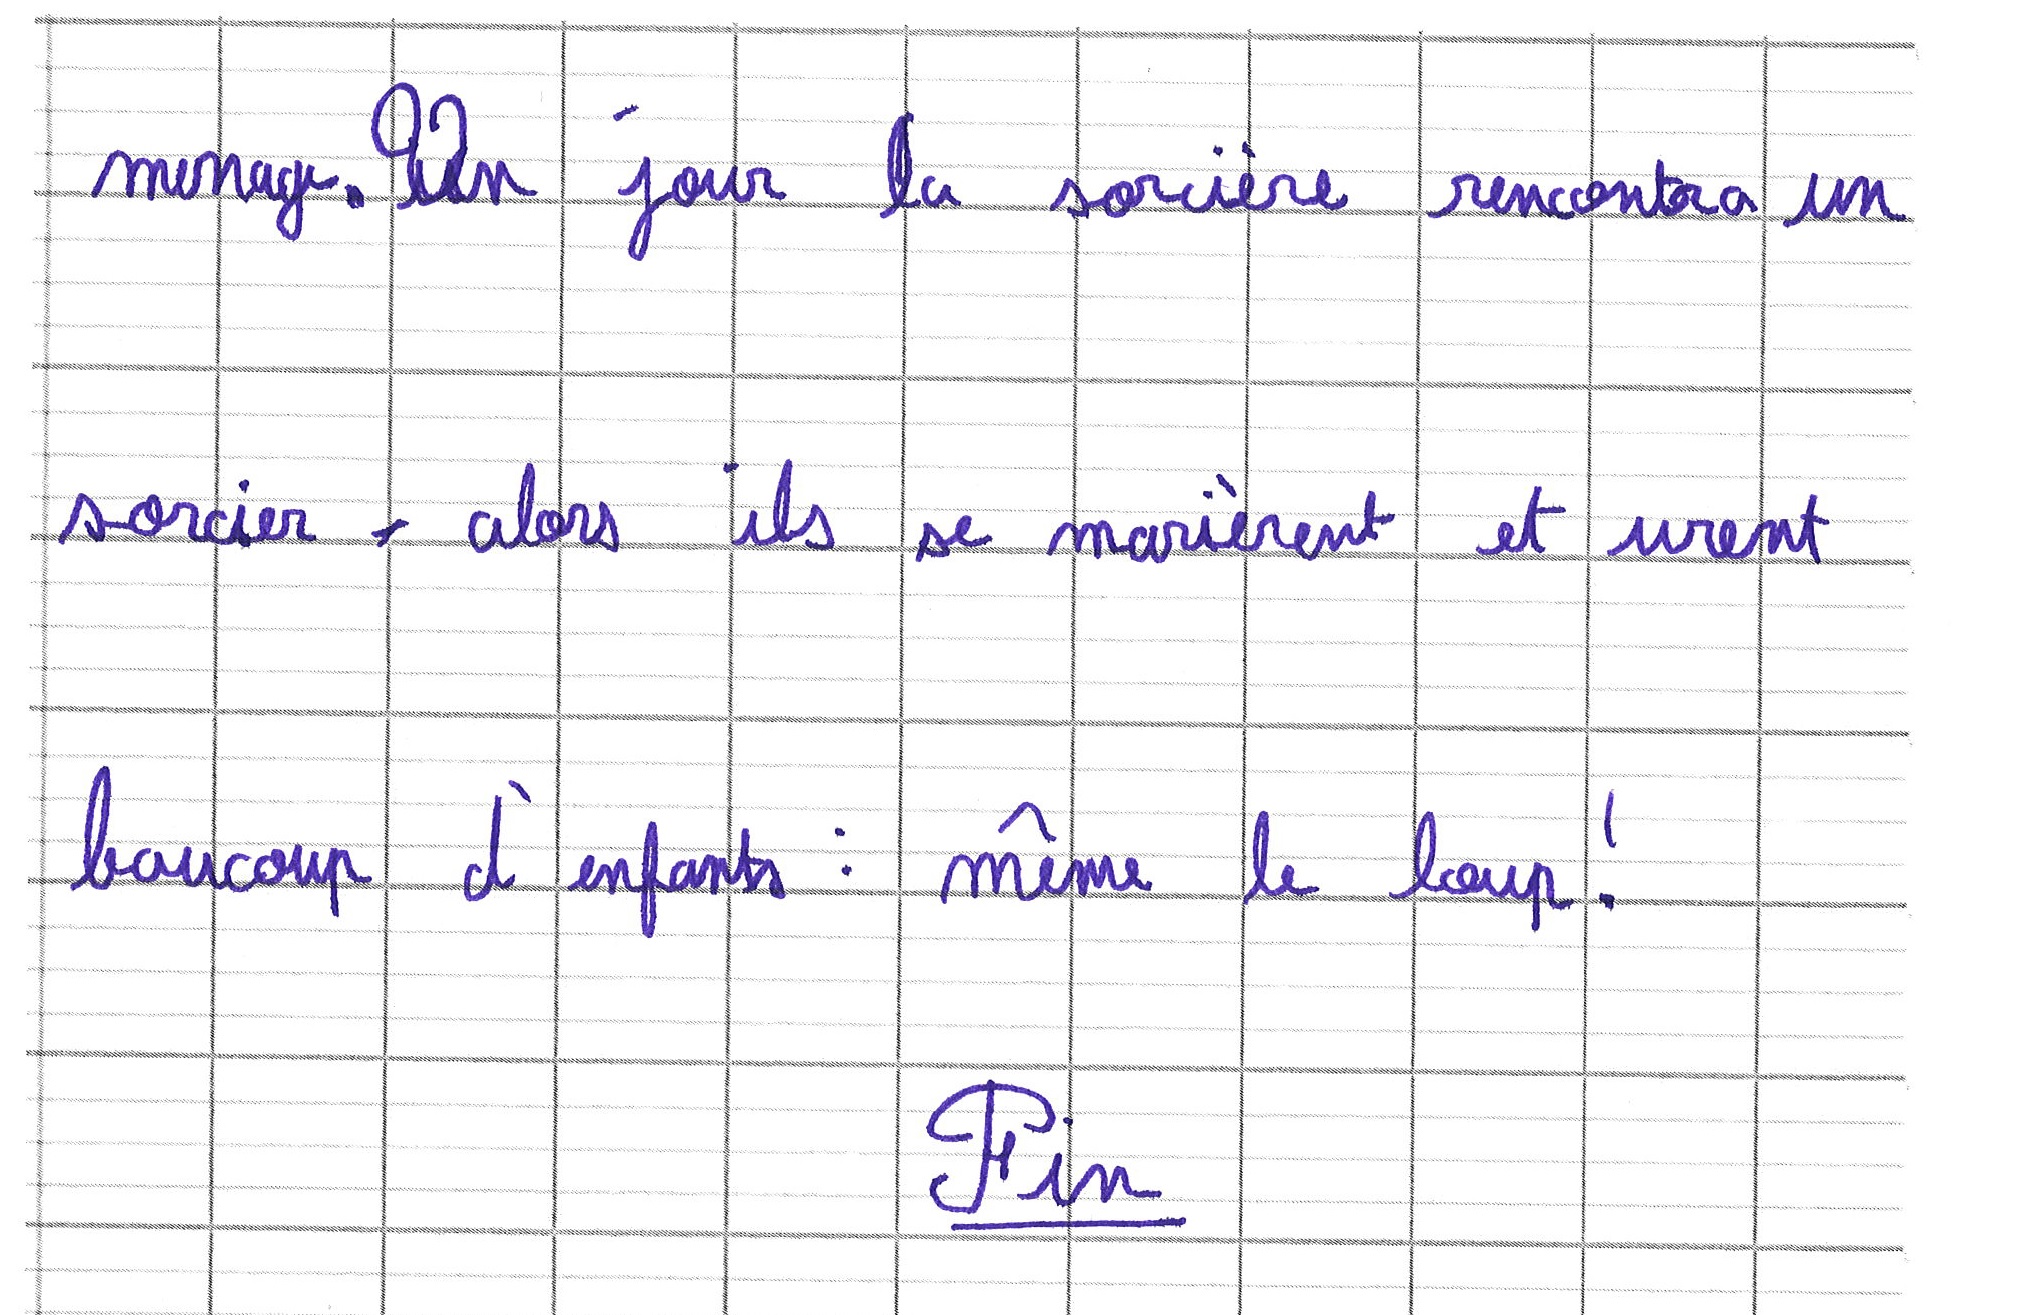 menage. Un jour la sorcière rencontra un
sorcier, alors ils se marièrent et urent
baucoup d'enfants : même le loup !
Fin